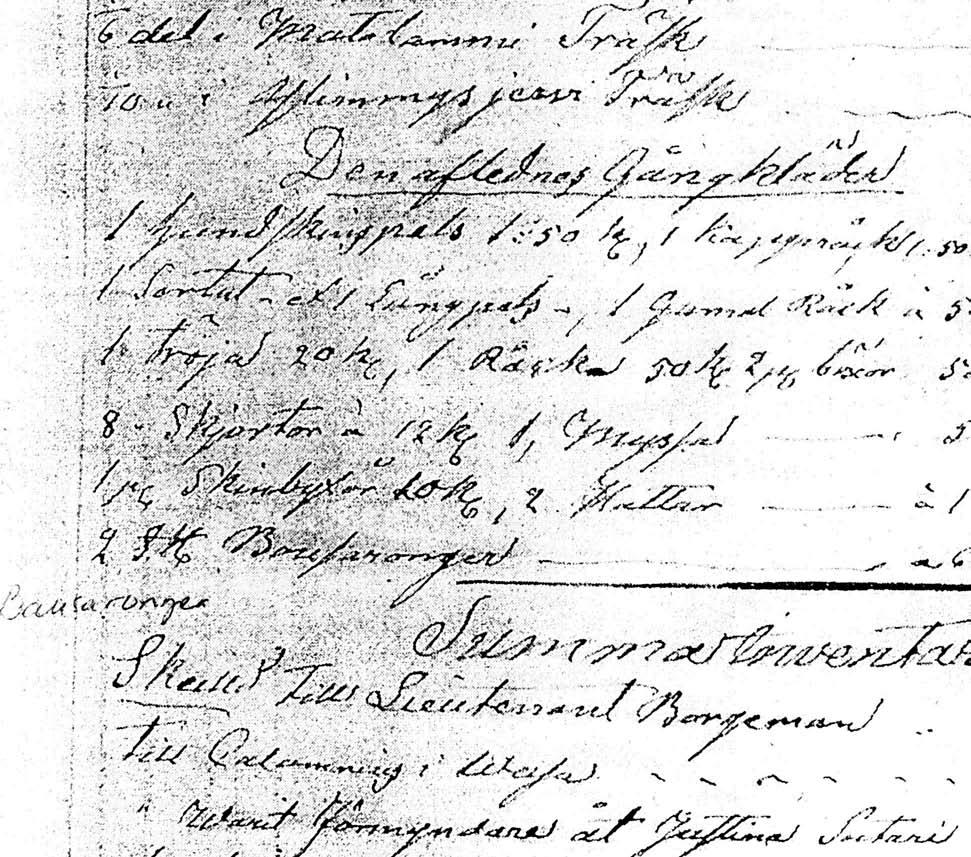 6 del i Matalammi Träsk
10 " i Ylimmysjervi Träsk
Den aflednes Gångkläder
1 hundskinspels 1:50 k, 1 Kappråck 1.50
1 Sortut - et 1 Långpels -, 1 Gamal Råck à 5
1 tröja 20 k, 1 Råck 50 k 2 pg böxor 5
8 Skjortor à 12 k 1, Myssa 5
1 pg Skinbyxor 20 k, 2 Hattar à 1
2 Bousaronger à 6
Bausaronger
Summa Inventari
Skuld till Lieutenant Borgeman
till i Wasa
" Warit förmyndare åt Justina Sutari